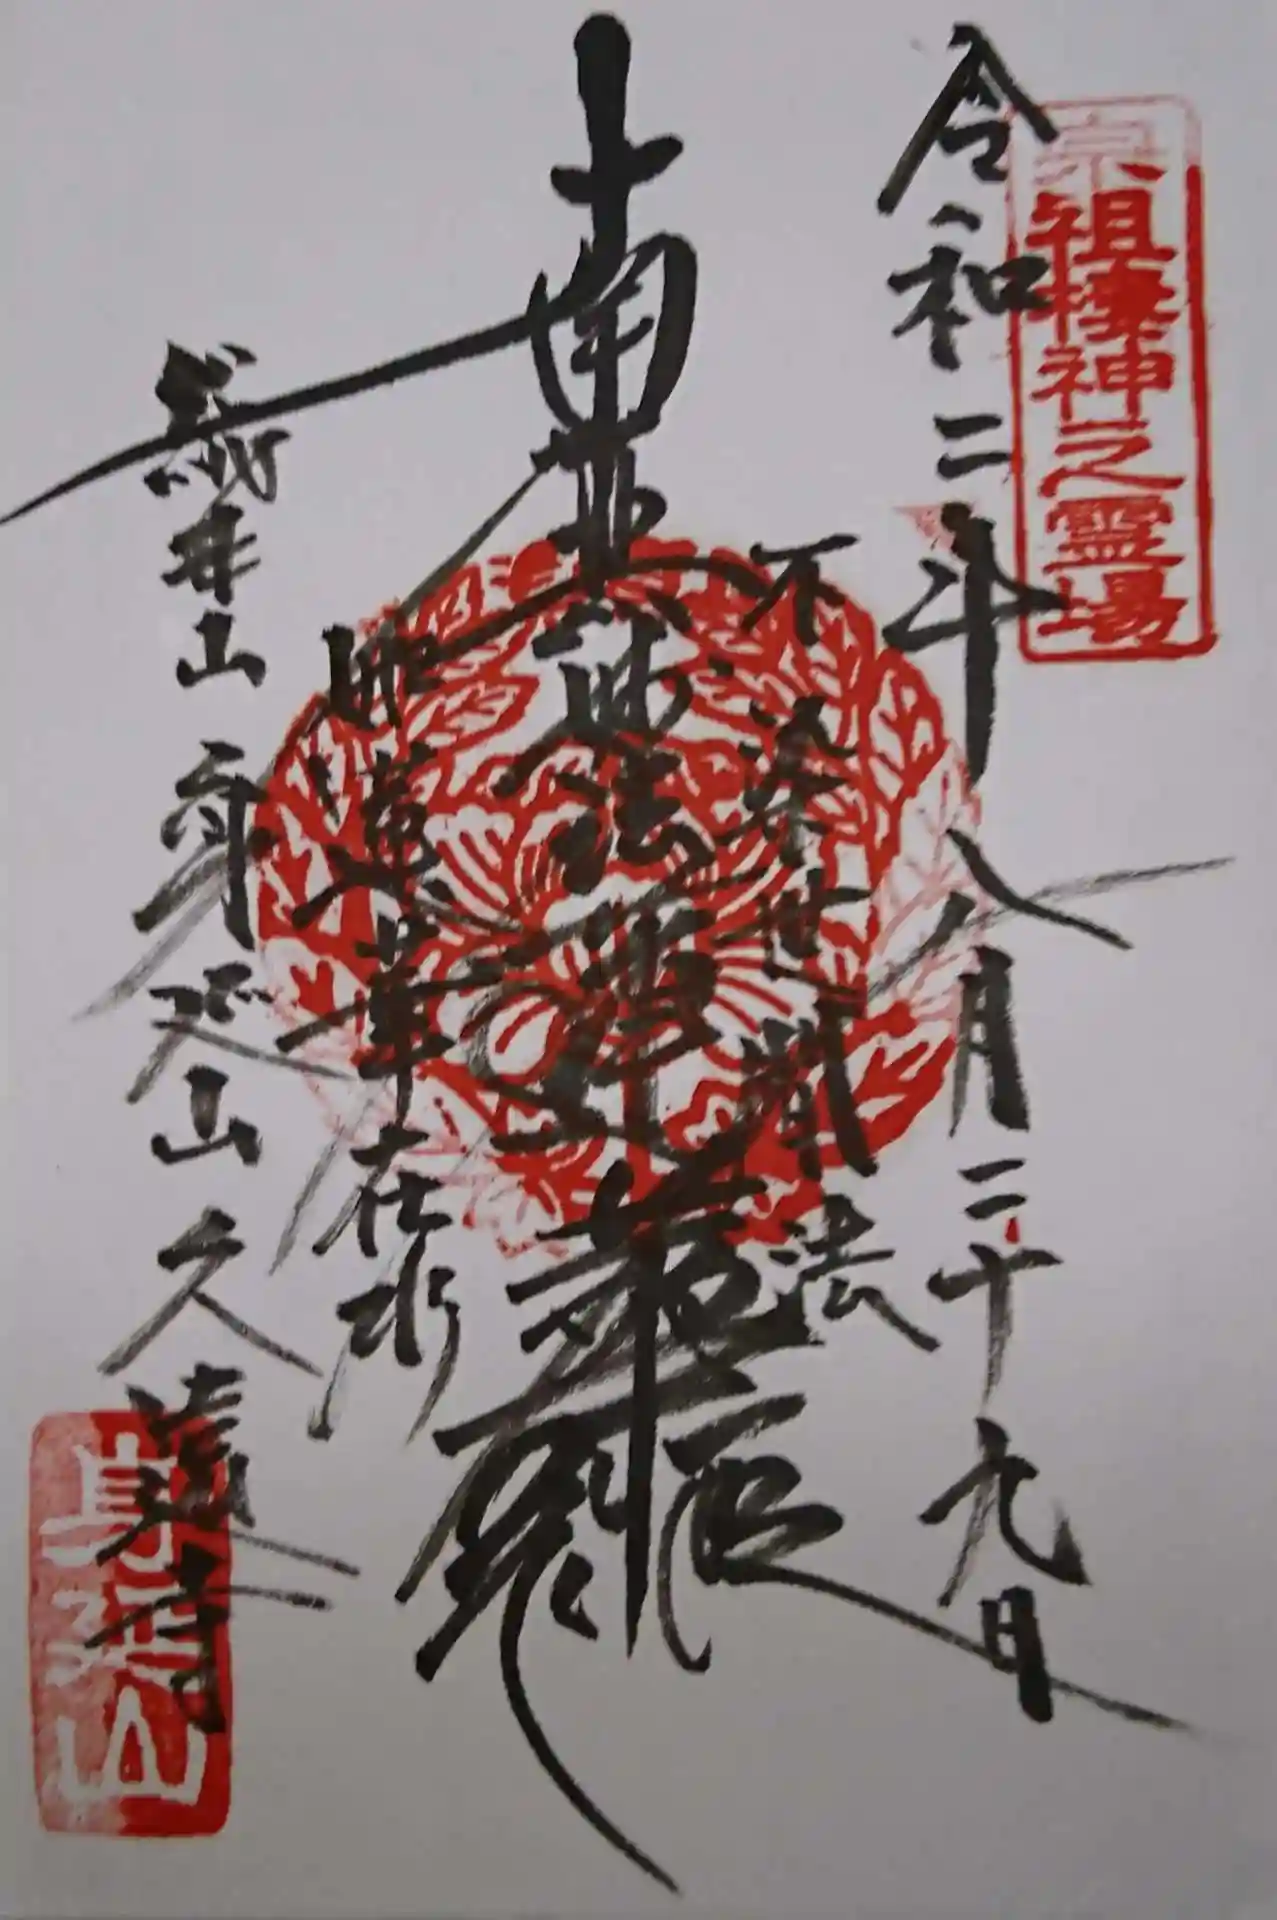 宗祖棲神之霊場
令和二年八月二十九日
不染世間法
南無妙法蓮華経
如蓮華在水
総本山身延山久遠寺
身延山